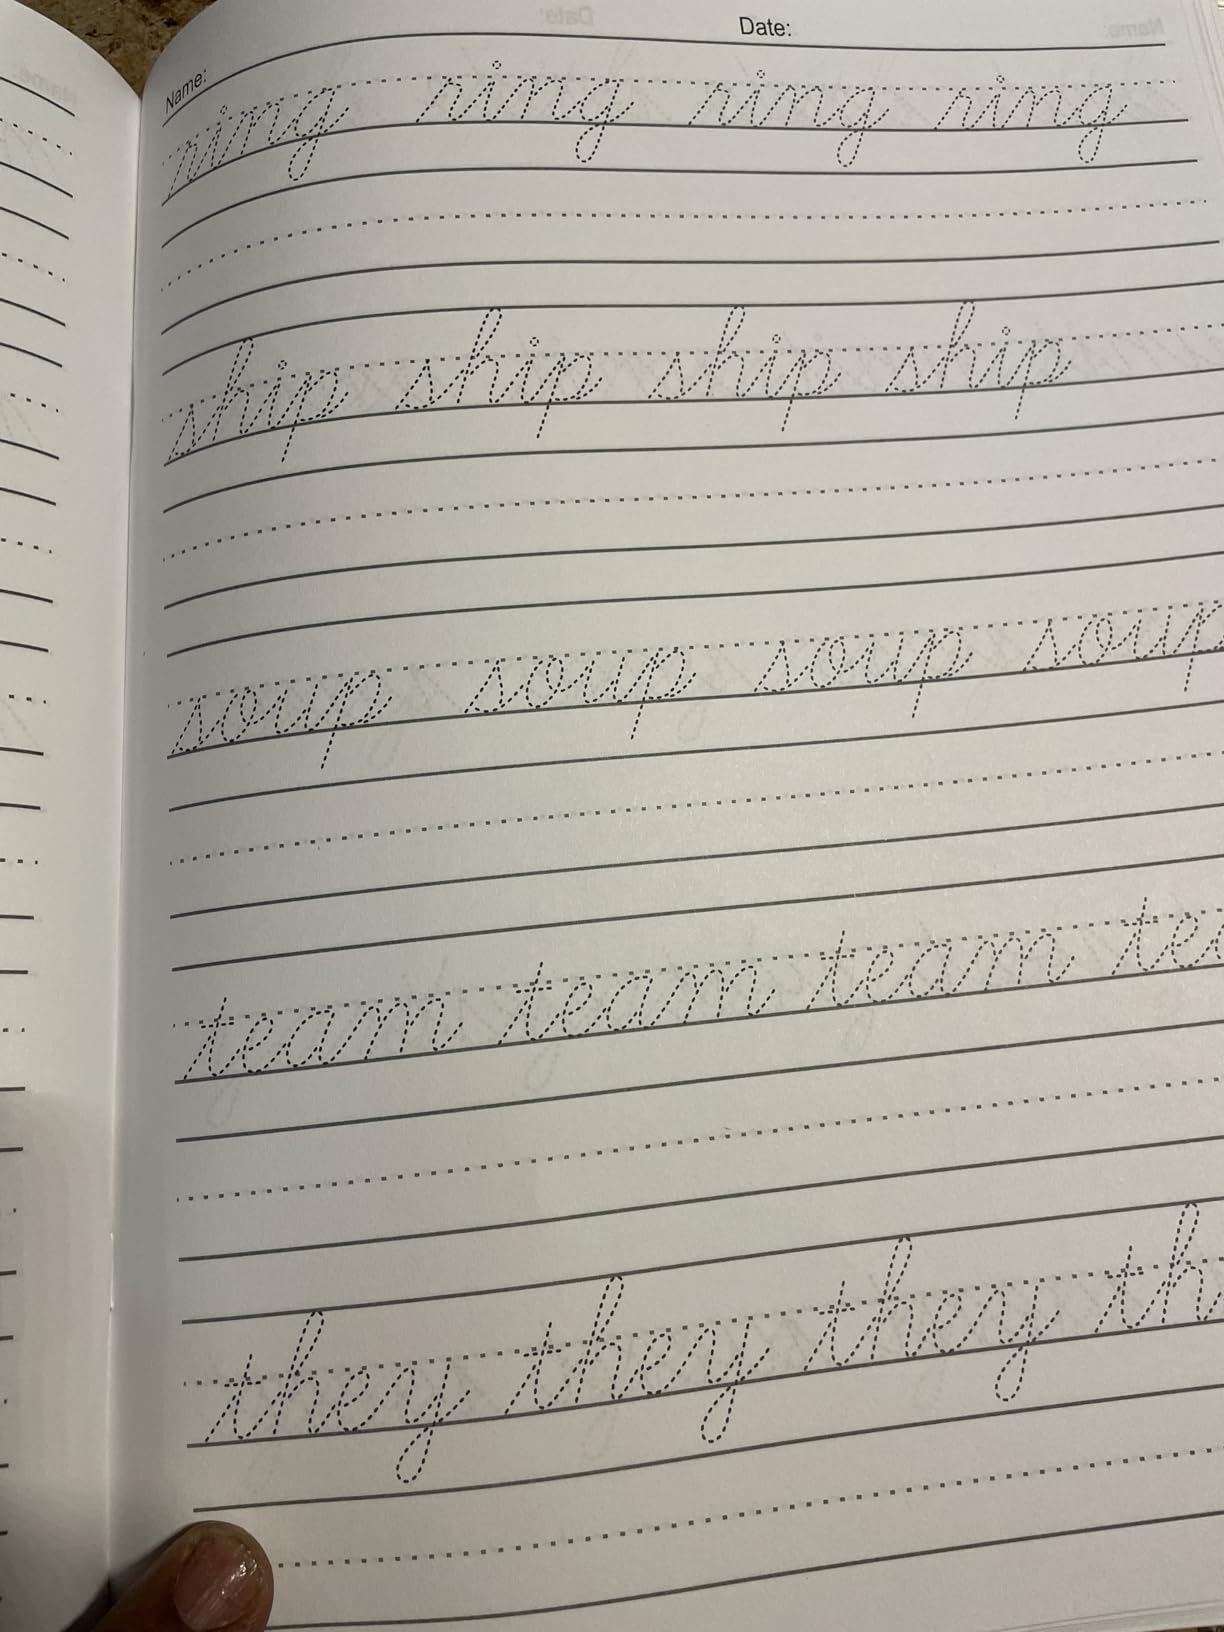 Name: Date:
ring ring ring ring
ship ship ship ship
soup soup soup soup
team team team tea
they they they th